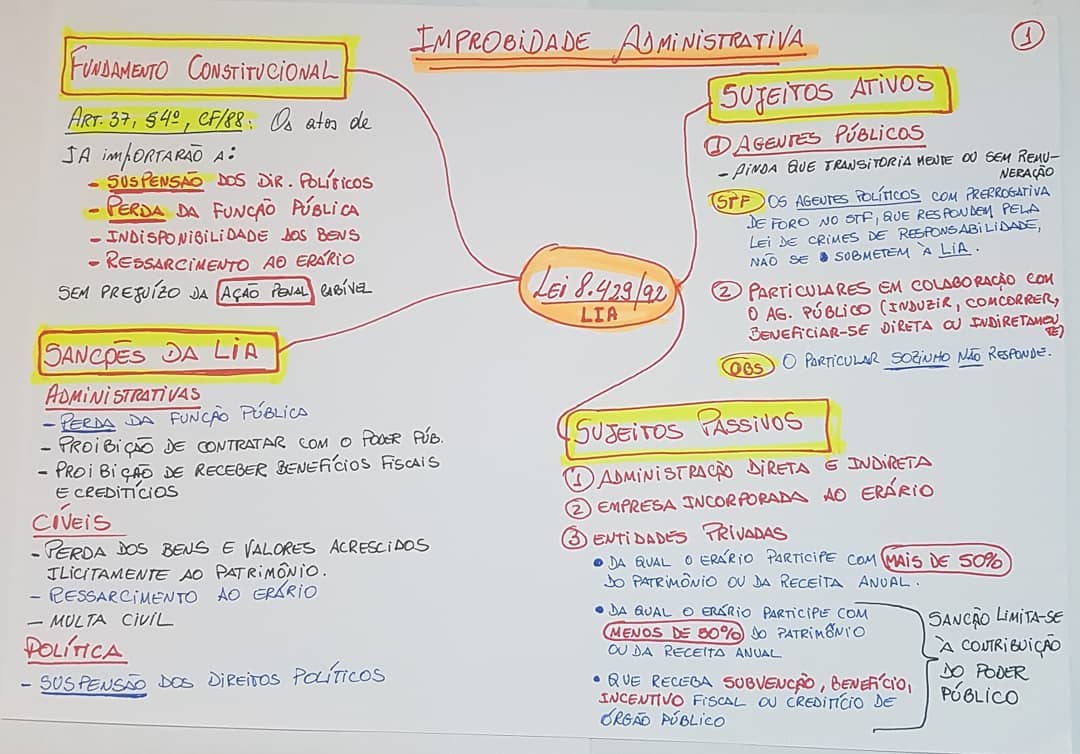 IMPROBIDADE ADMINISTRATIVA
1
FUNDAMENTO CONSTITUCIONAL
ART. 37, §4º, CF/88: Os atos de
IA IMPORTARÃO A:
- SUSPENSÃO DOS DIR. POLÍTICOS
- PERDA DA FUNÇÃO PÚBLICA
- INDISPONIBILIDADE DOS BENS
- RESSARCIMENTO AO ERÁRIO
SEM PREJUÍZO DA AÇÃO PENAL CABÍVEL
LEI 8.429/92
LIA
SANÇÕES DA LIA
ADMINISTRATIVAS
- PERDA DA FUNÇÃO PÚBLICA
- PROIBIÇÃO DE CONTRATAR COM O PODER PÚB.
- PROIBIÇÃO DE RECEBER BENEFÍCIOS FISCAIS
E CREDITÍCIOS
CÍVEIS
- PERDA DOS BENS E VALORES ACRESCIDOS
ILICITAMENTE AO PATRIMÔNIO.
- RESSARCIMENTO AO ERÁRIO
- MULTA CIVIL
POLÍTICA
- SUSPENSÃO DOS DIREITOS POLÍTICOS
SUJEITOS ATIVOS
1 AGENTES PÚBLICOS
- AINDA QUE TRANSITORIAMENTE OU SEM REMU-
NERAÇÃO
STF OS AGENTES POLÍTICOS COM PRERROGATIVA
DE FORO NO STF, QUE RESPONDEM PELA
LEI DE CRIMES DE RESPONSABILIDADE,
NÃO SE SUBMETEM À LIA.
2 PARTICULARES EM COLABORAÇÃO COM
O AG. PÚBLICO (INDUZIR, CONCORRER,
BENEFICIAR-SE DIRETA OU INDIRETAMEN
TE)
OBS O PARTICULAR SOZINHO NÃO RESPONDE.
SUJEITOS PASSIVOS
1 ADMINISTRAÇÃO DIRETA E INDIRETA
2 EMPRESA INCORPORADA AO ERÁRIO
3 ENTIDADES PRIVADAS
• DA QUAL O ERÁRIO PARTICIPE COM MAIS DE 50%
DO PATRIMÔNIO OU DA RECEITA ANUAL.
• DA QUAL O ERÁRIO PARTICIPE COM
MENOS DE 50% DO PATRIMÔNIO
OU DA RECEITA ANUAL
• QUE RECEBA SUBVENÇÃO, BENEFÍCIO,
INCENTIVO FISCAL OU CREDITÍCIO DE
ÓRGÃO PÚBLICO
SANÇÃO LIMITA-SE
À CONTRIBUIÇÃO
DO PODER
PÚBLICO